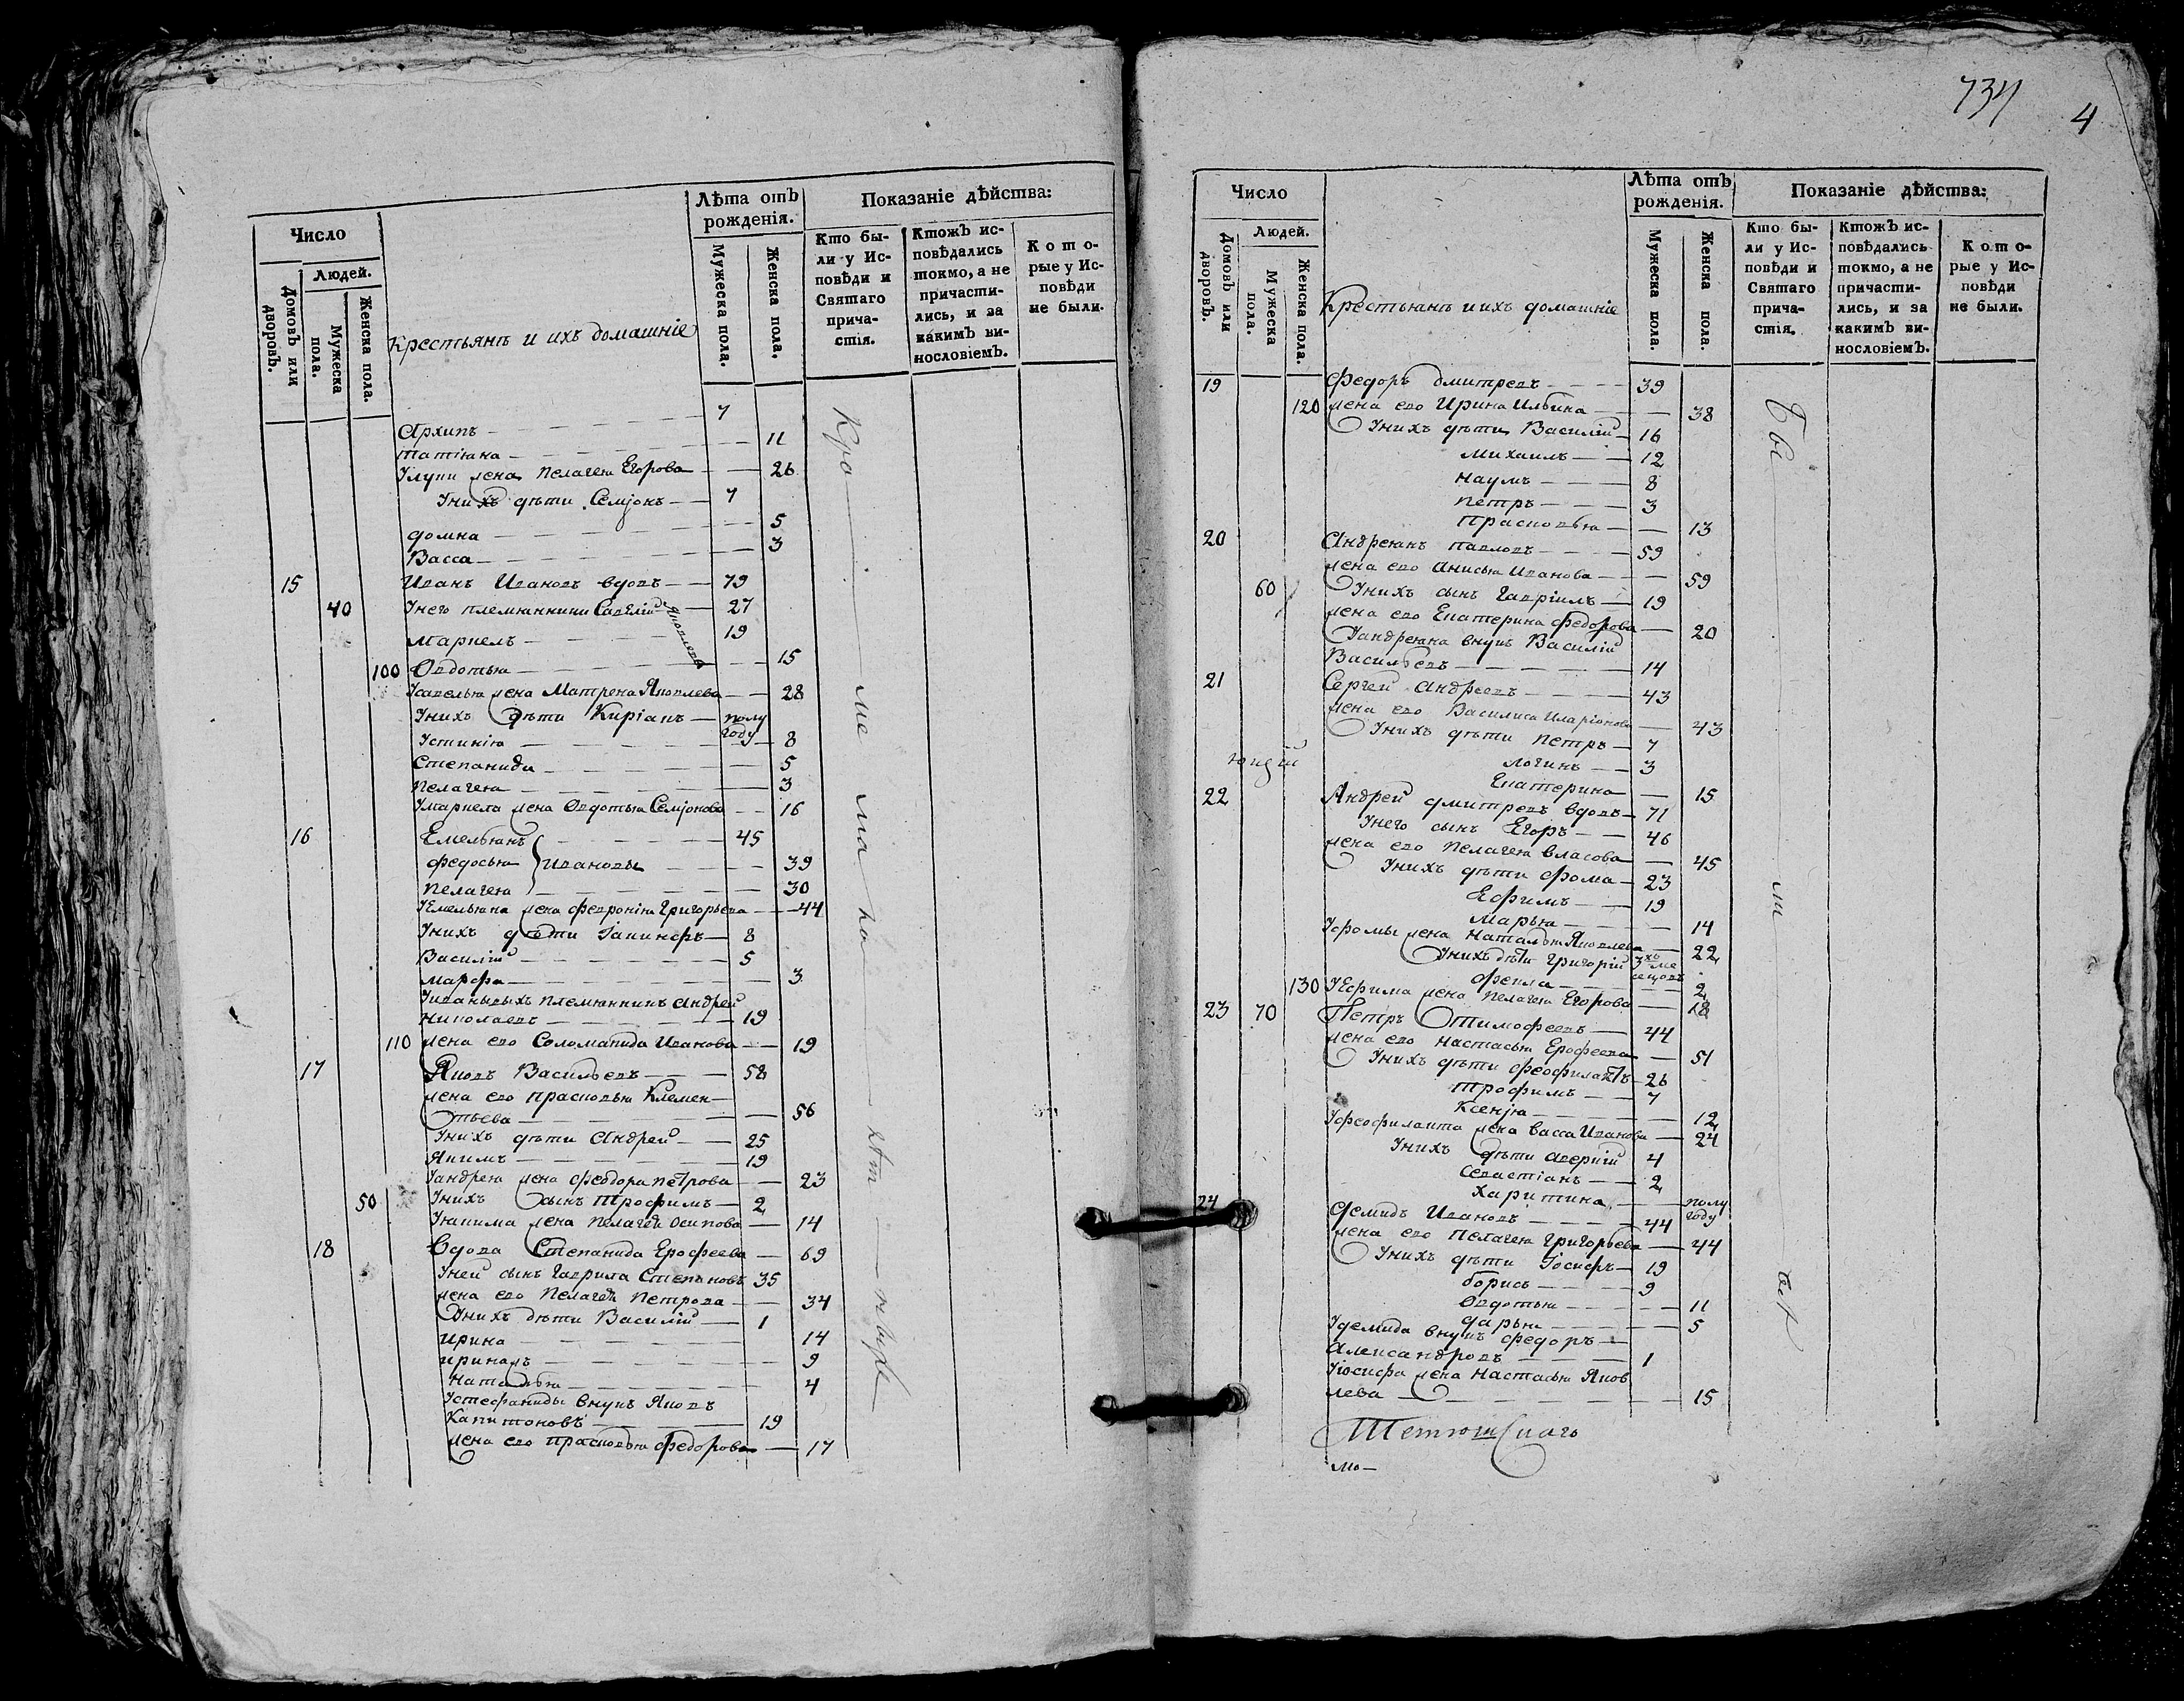 Число
Людей.
Домовъ или дворовъ.
Мужеска пола.
Женска пола.
Крестьянъ и ихъ домашніе
Лѣта отъ рожденія.
Мужеска пола.
Женска пола.
Показаніе дѣйства:
Кто были у Исповѣди и Святаго причастія.
Ктожъ исповѣдались токмо, а не причастились, и за какимъ винословіемъ.
Которые у Исповѣди не были.
Архипъ 7
татіяна 11
Улупи жена Пелагея Егорова 26
Унихъ дѣти Семіонъ 7
домна 5
Васса 3
15 Иванъ Ивановъ вдовъ 79
40 Унего племянники Савелій 27
Яковлевы
маркелъ 19
100 Овдотья 15
Усавелья жена Матрена Яковлева 28
Унихъ дѣти Киріакъ полу году
Устинія 8
Степанида 5
Пелагея 3
Умаркела жена Овдотья Семіонова 16
16 Емельянъ 45
федосья Ивановы 39
Пелагея 30
УЕмельяна жена февронія Григорьева 44
Унихъ дѣти Іакинфъ 8
Василій 5
марфа 3
Уивановыхъ племянникъ Андрей
Николаевъ 19
110 жена ево Соломанида Иванова 19
17 Яковъ Васильевъ 58
жена ево Прасковья Клемен
тьева 56
Унихъ дѣти Андрей 25
Якимъ 19
Уандрея жена феодора петрова 23
50 Унихъ сынъ Трофимъ 2
Уякима жена Пелагея Осипова 14
18 Вдова Степанида Ерофеева 69
Уней сынъ Гаврила Степановъ 35
жена ево Пелагея Петрова 34
Унихъ дѣти Василій 1
ирина 14
ирина жъ 9
Наталья 4
Устефаниды внукъ Яковъ
Капитоновъ 19
жена ево Прасковья Федорова 17
Кро ме ма ко лѣт нихъ
734
4
Число
Людей.
Домовъ или дворовъ.
Мужеска пола.
Женска пола.
Крестьянъ и ихъ домашніе
Лѣта отъ рожденія.
Мужеска пола.
Женска пола.
Показаніе дѣйства:
Кто были у Исповѣди и Святаго причастія.
Ктожъ исповѣдались токмо, а не причастились, и за какимъ винословіемъ.
Которые у Исповѣди не были.
19 Федоръ дмитревъ 39
120 жена ево Ирина Ильина 38
Унихъ дѣти Василій 16
михаилъ 12
Наумъ 8
петръ 3
прасковья 13
20 Андреянъ павловъ 59
жена ево Анисья Иванова 59
60 Унихъ сынъ Гавріилъ 19
жена ево Екатерина федорова 20
Уандреяна внукъ Василій
Васильевъ 14
21 Сергей Андреевъ 43
жена ево Василиса Иларіонова 43
Унихъ дѣти Петръ 7
логинъ 3
Екатерина 15
22 Андрей дмитревъ вдовъ 71
Унего сынъ Егоръ 46
жена ево Пелагея Власова 45
Унихъ дѣти фома 23
Ефимъ 19
Марья 14
Уфомы жена Наталья Яковлева 22
Унихъ дѣти Григорій 3хъ ме сецовъ
фекла 2
130 УЕфима жена Пелагея Егорова 18
23 70 Петръ тимофеевъ 44
жена ево Настасья Ерофеева 51
Унихъ дѣти феофилактъ 26
трофимъ 7
Ксенія 12
Уфеофилакта жена Васса Иванова 24
Унихъ дѣти Аверкій 4
Севастіанъ 2
харитина полу году
24 Демидъ Ивановъ 44
жена ево Пелагея Григорьева 44
Унихъ дѣти Іосифъ 19
борисъ 9
Овдотья 11
дарья 5
Удемида внукъ федоръ
Александровъ 1
Уіосифа жена Настасья Яков
лева 15
Бы